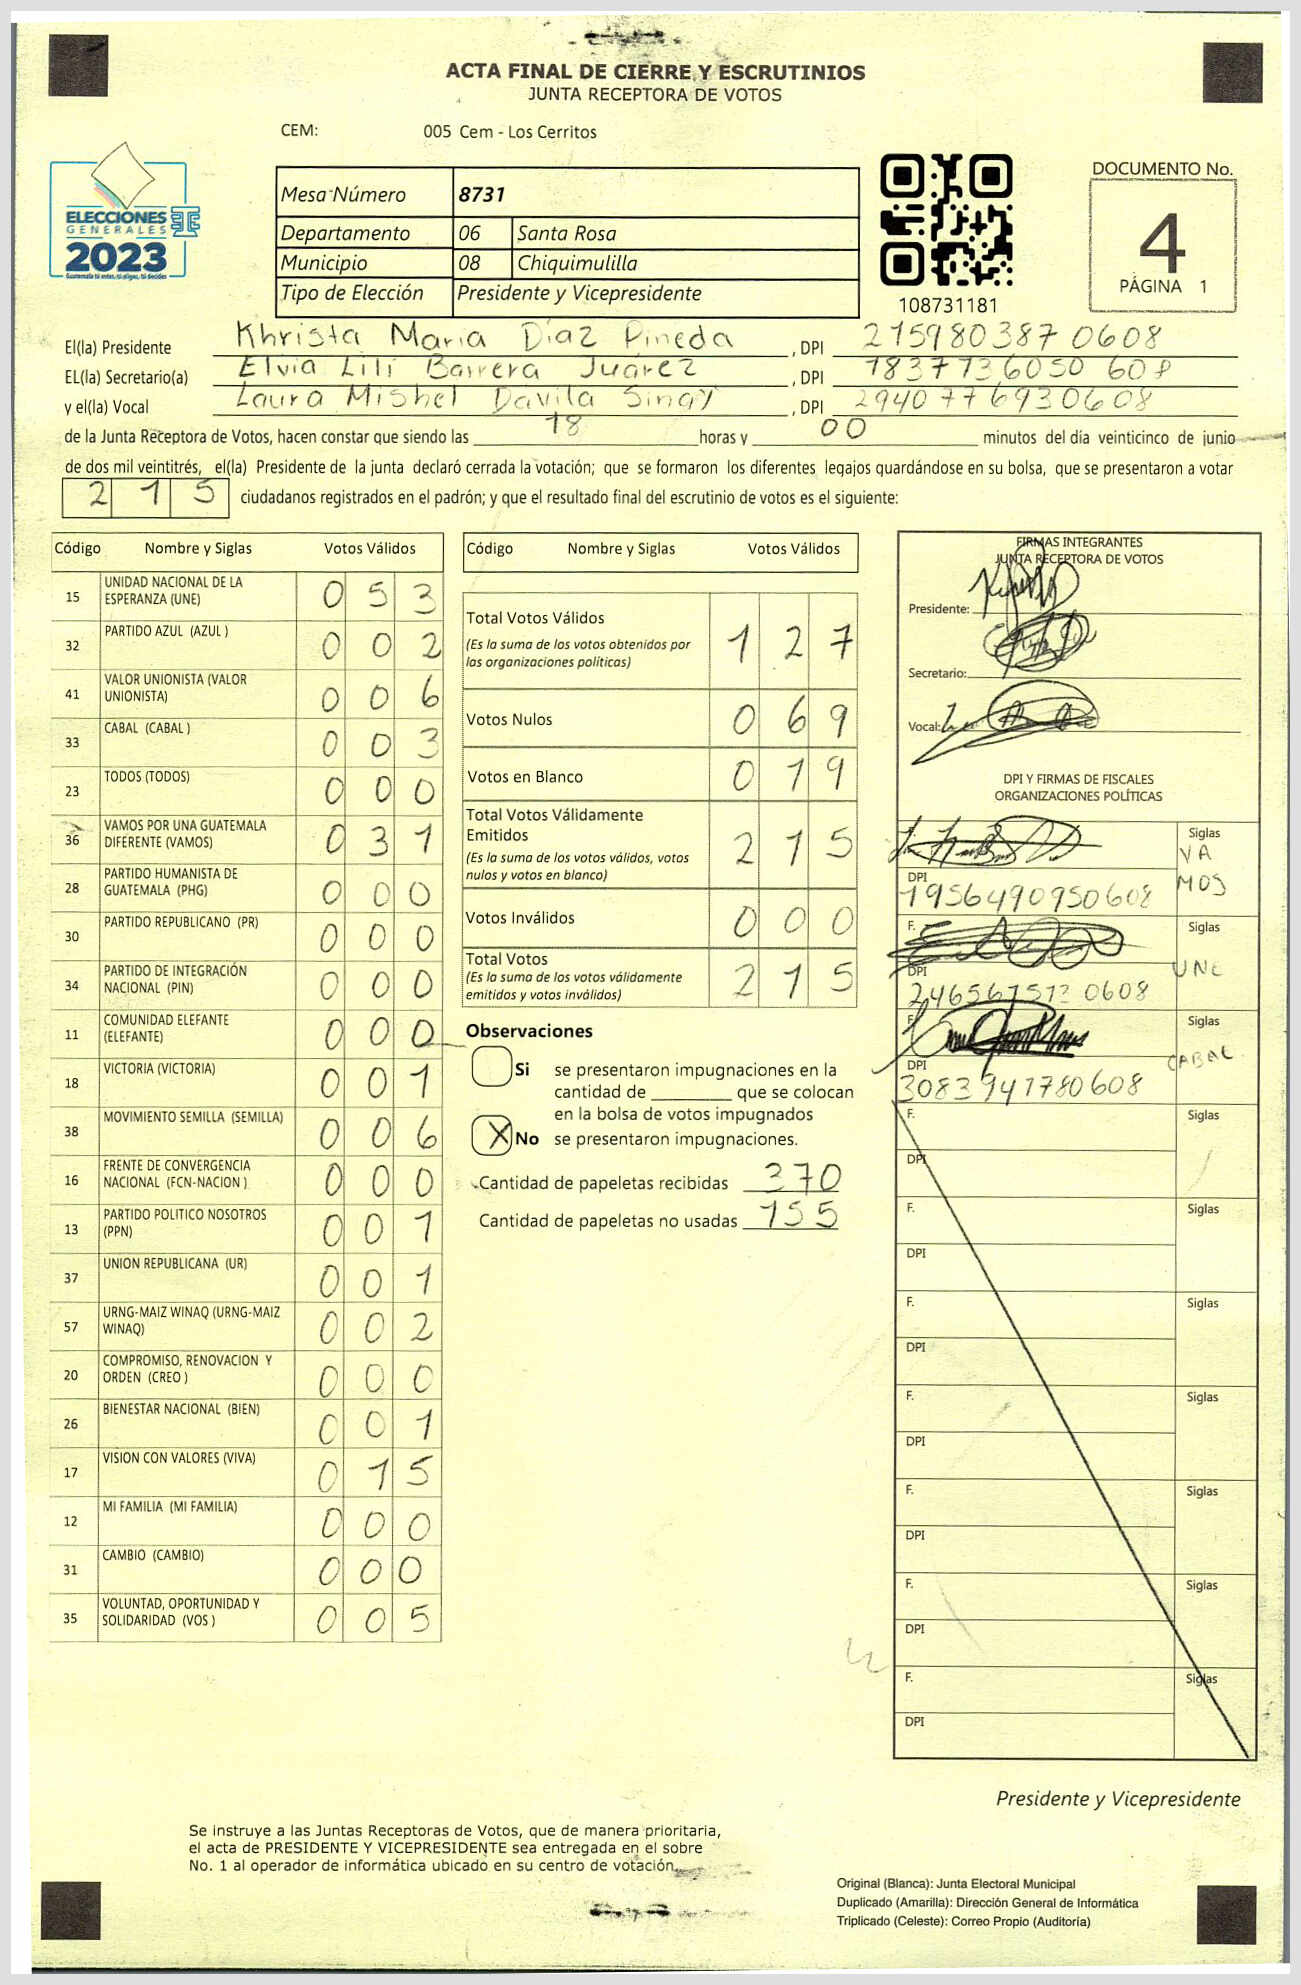 ACTA FINAL DE CIERRE Y ESCRUTINIOS
JUNTA RECEPTORA DE VOTOS
CEM: 005 Cem - Los Cerritos
ELECCIONES
GENERALES
2023
Mesa Número 8731
Departamento 06 Santa Rosa
Municipio 08 Chiquimulilla
Tipo de Elección Presidente y Vicepresidente
108731181
DOCUMENTO No.
4
PÁGINA 1
El(la) Presidente Khrista Maria Díaz Pineda, DPI 2159803870608
EL(la) Secretario(a) Elvia Lili Barrera Juárez, DPI 1837736050 608
y el(la) Vocal Laura Mishel Davila Singy, DPI 2940776930608
de la Junta Receptora de Votos, hacen constar que siendo las 18 horas y 00 minutos del día veinticinco de junio
de dos mil veintitrés, el(la) Presidente de la junta declaró cerrada la votación; que se formaron los diferentes legajos guardándose en su bolsa, que se presentaron a votar
215 ciudadanos registrados en el padrón; y que el resultado final del escrutinio de votos es el siguiente:
Código Nombre y Siglas Votos Válidos
15 UNIDAD NACIONAL DE LA ESPERANZA (UNE) 053
32 PARTIDO AZUL (AZUL ) 002
41 VALOR UNIONISTA (VALOR UNIONISTA) 006
33 CABAL (CABAL ) 003
23 TODOS (TODOS) 000
36 VAMOS POR UNA GUATEMALA DIFERENTE (VAMOS) 031
28 PARTIDO HUMANISTA DE GUATEMALA (PHG) 000
30 PARTIDO REPUBLICANO (PR) 000
34 PARTIDO DE INTEGRACIÓN NACIONAL (PIN) 000
11 COMUNIDAD ELEFANTE (ELEFANTE) 000
18 VICTORIA (VICTORIA) 001
38 MOVIMIENTO SEMILLA (SEMILLA) 006
16 FRENTE DE CONVERGENCIA NACIONAL (FCN-NACION ) 000
13 PARTIDO POLITICO NOSOTROS (PPN) 001
37 UNION REPUBLICANA (UR) 001
57 URNG-MAIZ WINAQ (URNG-MAIZ WINAQ) 002
20 COMPROMISO, RENOVACION Y ORDEN (CREO ) 000
26 BIENESTAR NACIONAL (BIEN) 001
17 VISION CON VALORES (VIVA) 015
12 MI FAMILIA (MI FAMILIA) 000
31 CAMBIO (CAMBIO) 000
35 VOLUNTAD, OPORTUNIDAD Y SOLIDARIDAD (VOS ) 005
Código Nombre y Siglas Votos Válidos
Total Votos Válidos 127
(Es la suma de los votos obtenidos por
las organizaciones políticas)
Votos Nulos 069
Votos en Blanco 019
Total Votos Válidamente
Emitidos 215
(Es la suma de los votos válidos, votos
nulos y votos en blanco)
Votos Inválidos 000
Total Votos 215
(Es la suma de los votos válidamente
emitidos y votos inválidos)
Observaciones
Si se presentaron impugnaciones en la
cantidad de ________ que se colocan
en la bolsa de votos impugnados
X No se presentaron impugnaciones.
Cantidad de papeletas recibidas 370
Cantidad de papeletas no usadas 155
FIRMAS INTEGRANTES
JUNTA RECEPTORA DE VOTOS
Presidente:
Secretario:
Vocal:
DPI Y FIRMAS DE FISCALES
ORGANIZACIONES POLÍTICAS
Siglas VAMOS
DPI 1956490950608
F. Siglas UNE
DPI 0608
F. Siglas CABAL
DPI 3083941780608
F. Siglas
DPI
F. Siglas
DPI
F. Siglas
DPI
F. Siglas
DPI
F. Siglas
DPI
F. Siglas
DPI
F. Siglas
DPI
Presidente y Vicepresidente
Se instruye a las Juntas Receptoras de Votos, que de manera prioritaria,
el acta de PRESIDENTE Y VICEPRESIDENTE sea entregada en el sobre
No. 1 al operador de informática ubicado en su centro de votación
Original (Blanca): Junta Electoral Municipal
Duplicado (Amarilla): Dirección General de Informática
Triplicado (Celeste): Correo Propio (Auditoría)